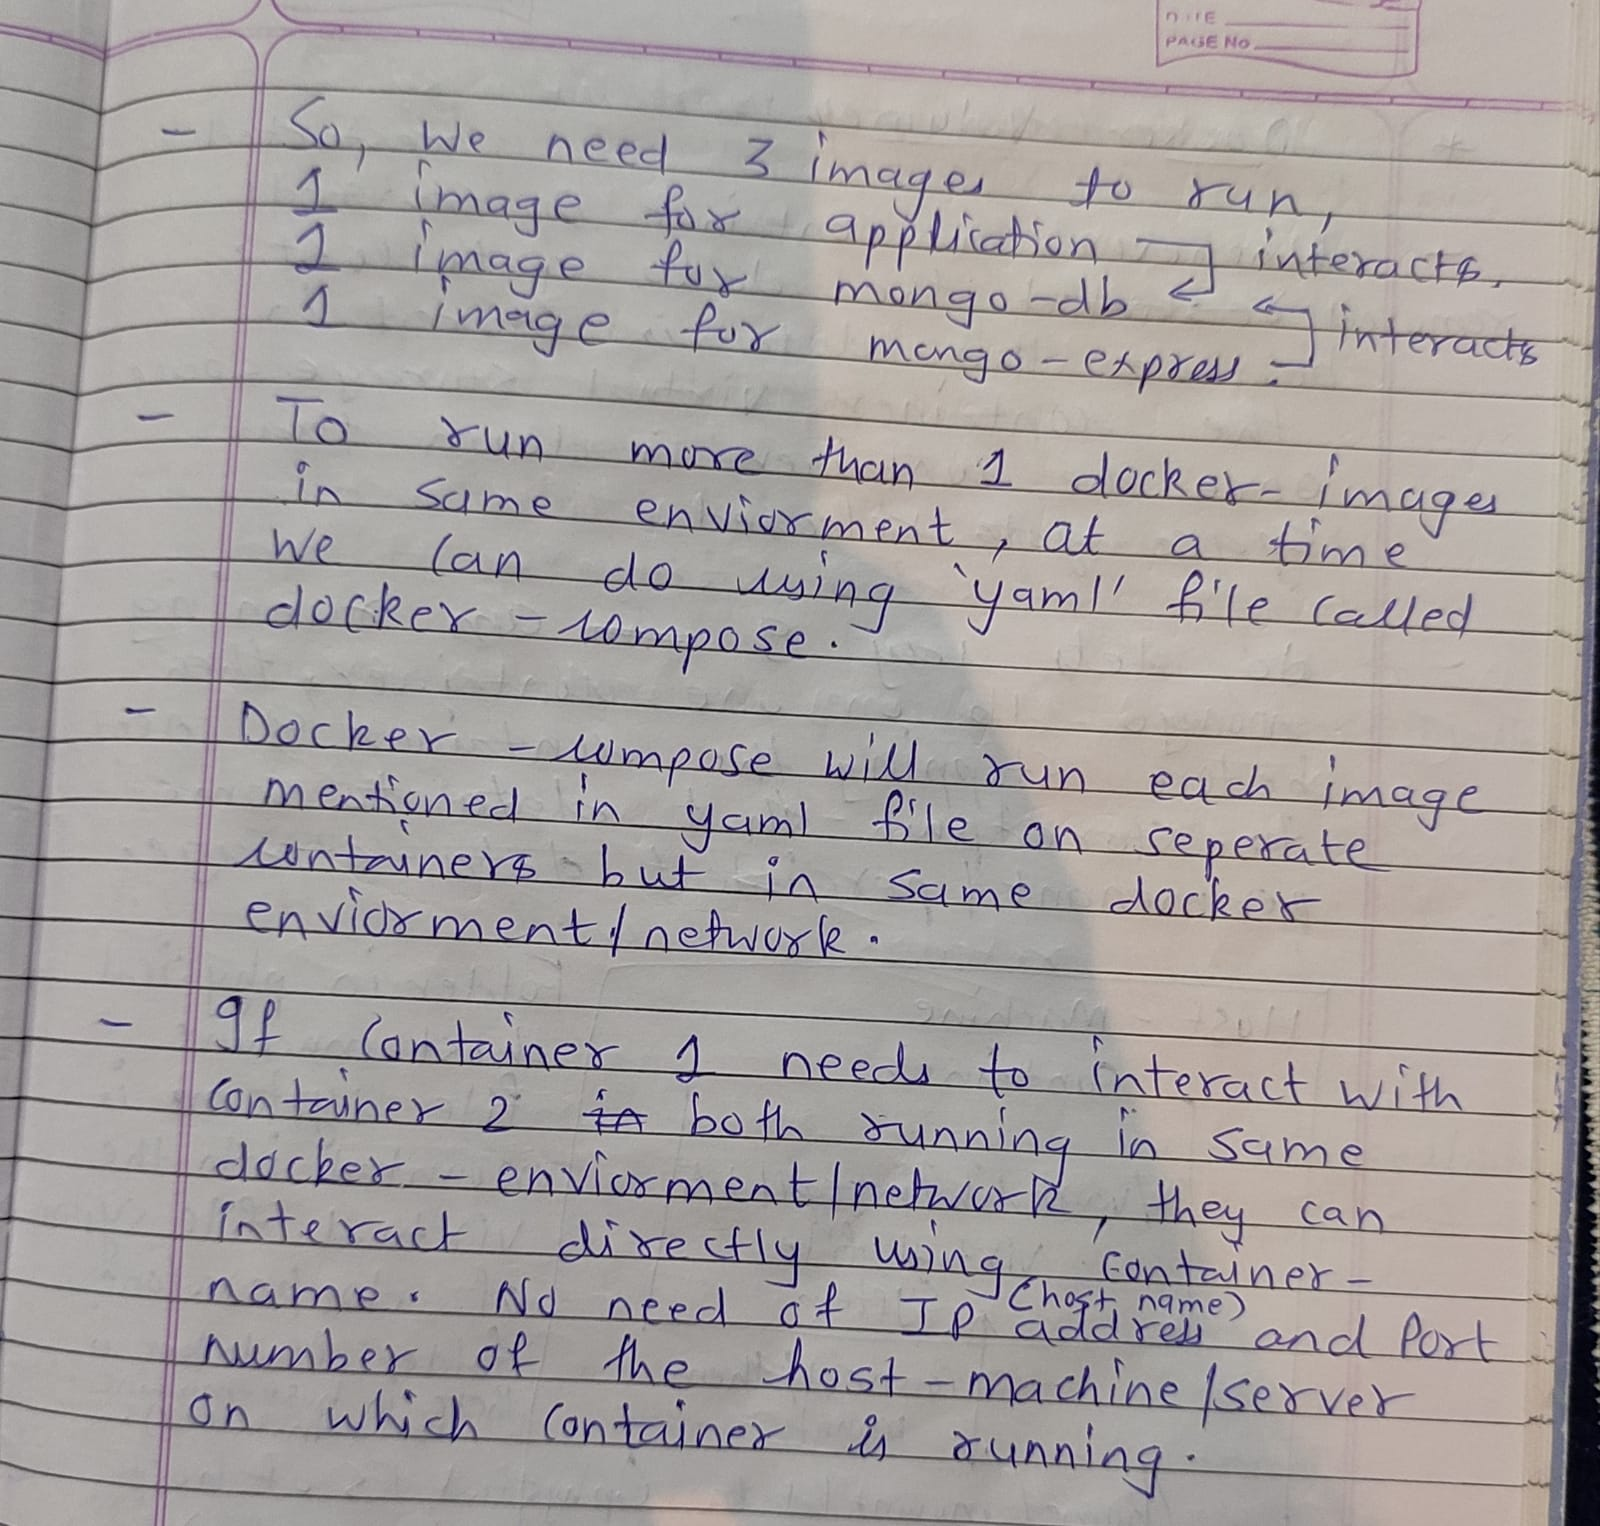 DATE
PAGE NO
- So, We need 3 images to run,
1 image for application interacts.
1 image for mongo-db
1 image for mongo-express. interacts
- To run more than 1 docker-images
in same enviorment, at a time
we can do using 'yaml' file called
docker-compose.
- Docker-compose will run each image
mentioned in yaml file on seperate
containers but in same docker
enviorment/network.
- If container 1 needs to interact with
container 2 in both running in same
docker-enviorment/network, they can
interact directly using container-
name. No need of IP address and Port
(host name)
number of the host-machine/server
on which container is running.